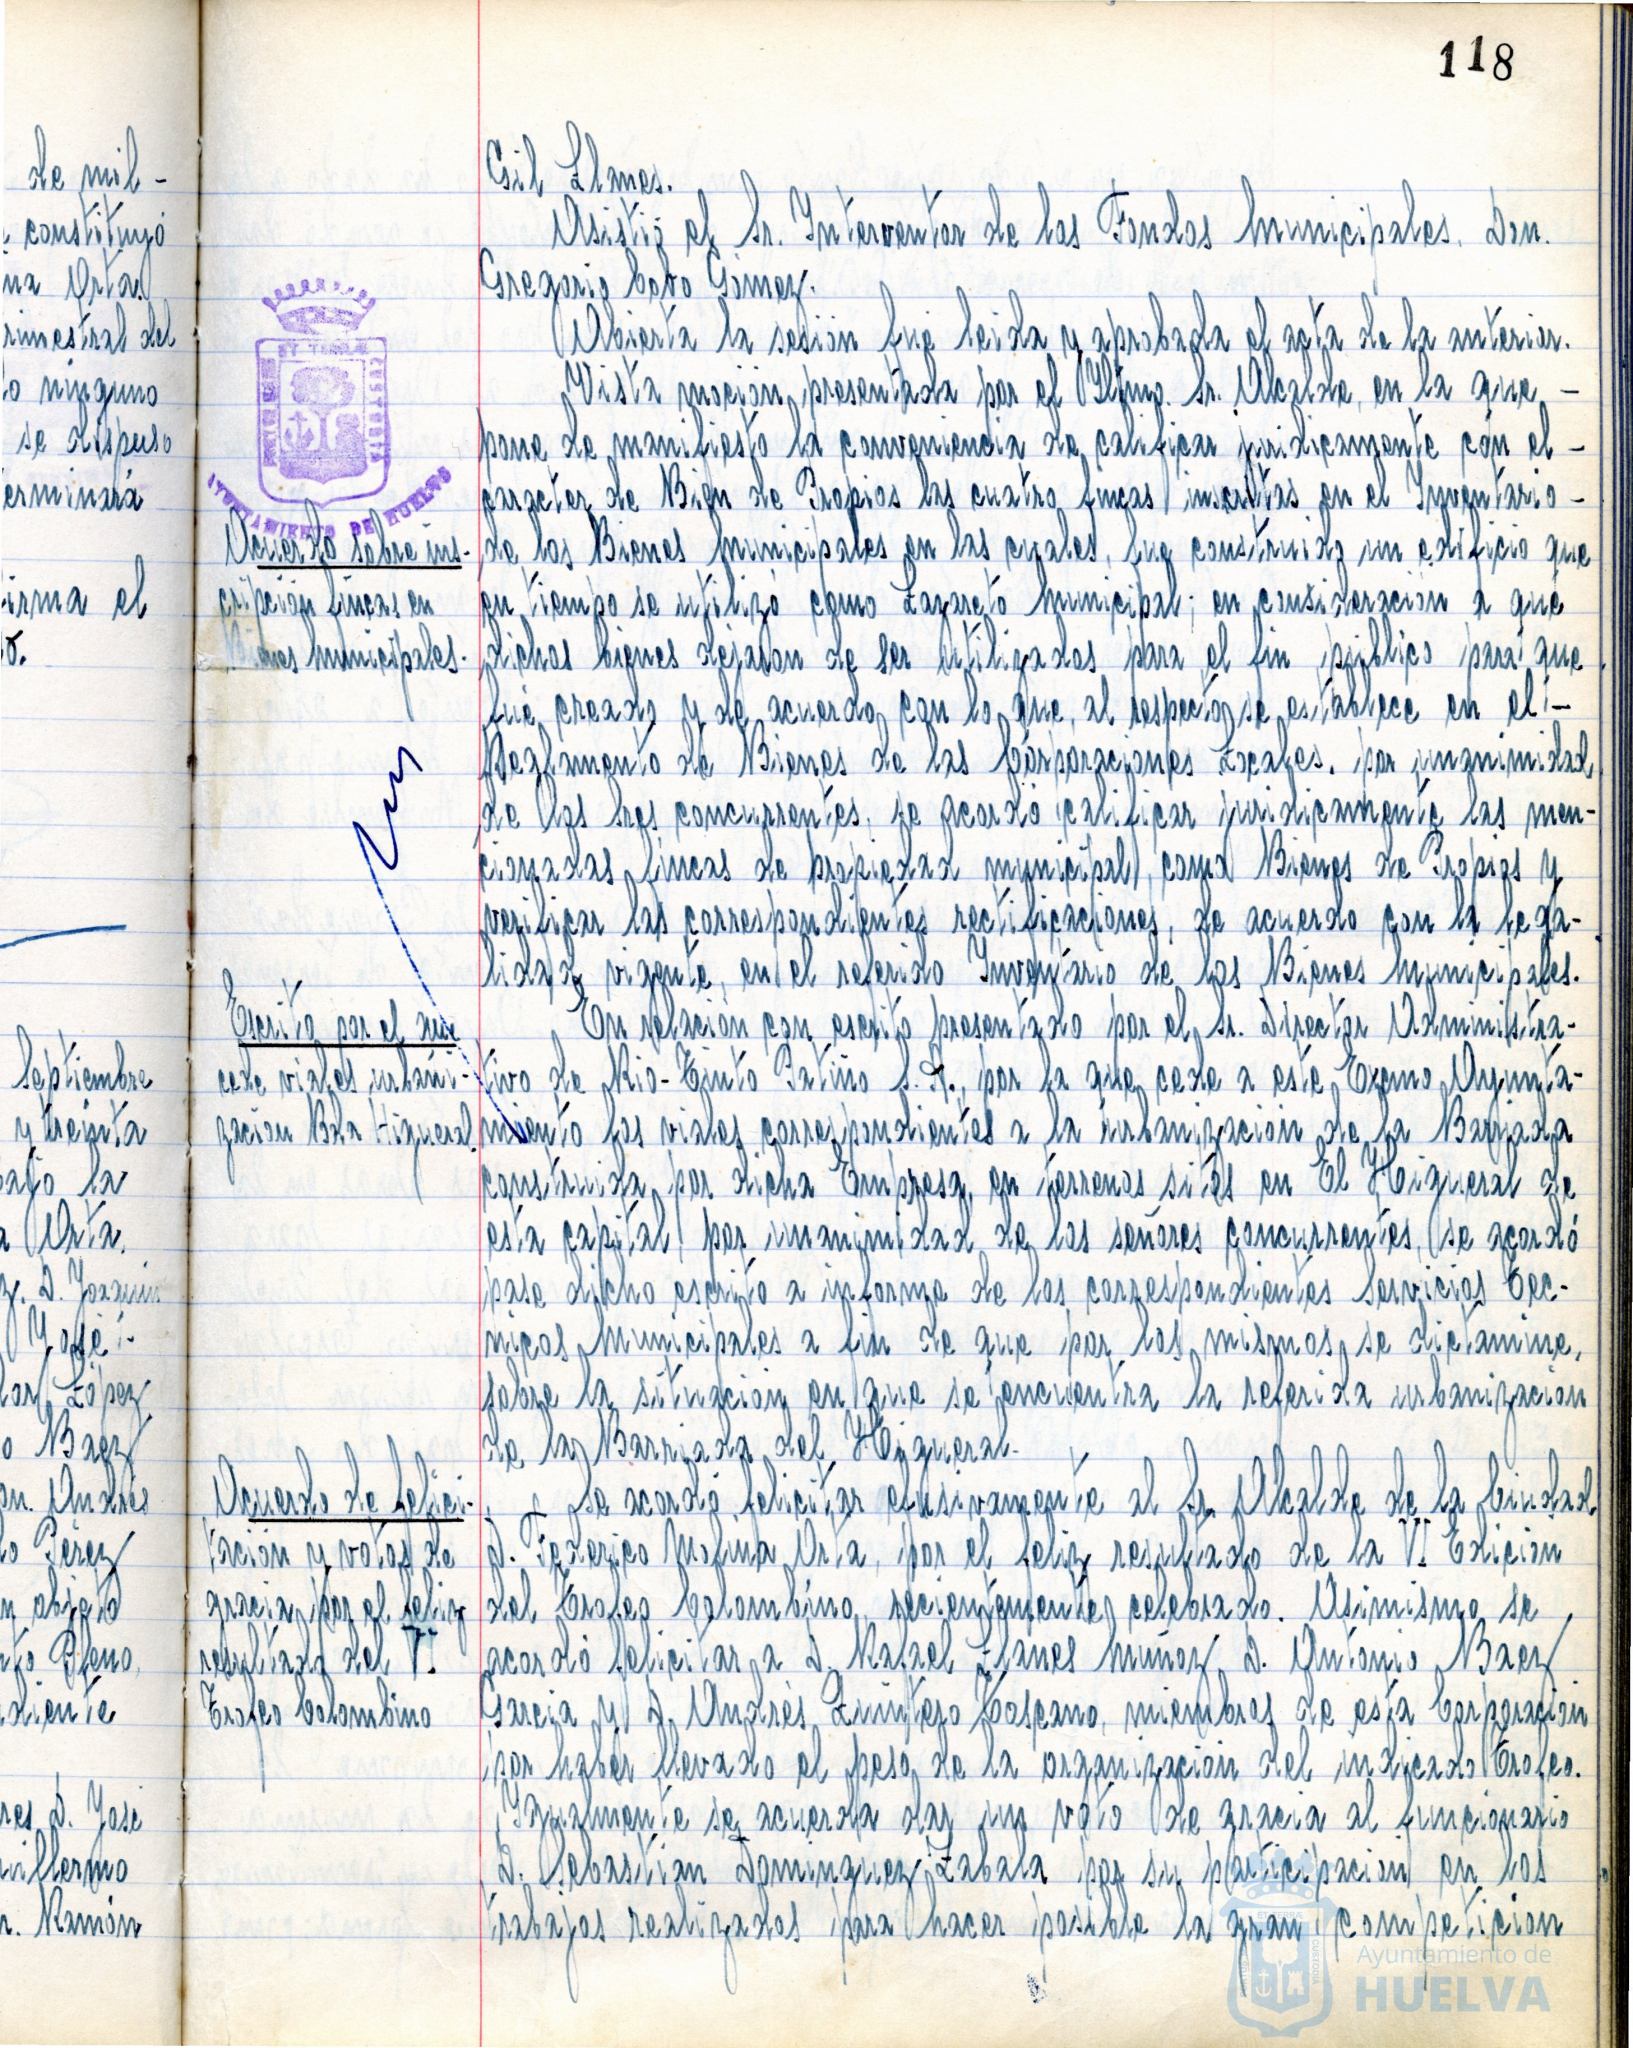 118
de mil-
constituyó
na Orta.
rimestral del
o ninguno
se dispuso
erminará
irma el
Septiembre
y treinta
bajo la
Orta.
D. Joaquin
José
lor López
o Baez
on. Andrés
lo Pérez
abierto
nto Pleno,
diente
res. D. José
uillermo
n. Ramón
ET TERRAE
PORTUS MARIS
CUSTODIA
AYUNTAMIENTO DE HUELVA
Acuerdo sobre ins-
cripción fincas en
Bienes municipales.
Escrito por el que
cede viales urbani-
zación Bda Higueral.
Acuerdo de felici-
tación y votos de
gracia por el feliz
resultado del VI
Trofeo Colombino
Gil Llanes.
Asistió el Sr. Interventor de los Fondos Municipales, Don.
Gregorio Calvo Gómez.
Abierta la sesión fué leida y aprobada el acta de la anterior.
Vista moción presentada por el Iltmo. Sr. Alcalde, en la que -
pone de manifiesto la conveniencia de calificar juridicamente con el -
caracter de Bien de Propios las cuatro fincas inscritas en el Inventario -
de los Bienes Municipales en las cuales, fue construido un edificio que
en tiempo se utilizó como Lazareto Municipal; en consideración a que
dichos bienes dejaron de ser utilizados para el fin público para que
fué creado y de acuerdo con lo que, al respecto se establece en el -
Reglamento de Bienes de las Corporaciones Locales, por unanimidad
de los Sres concurrentes, se acordó calificar juridicamente las men-
cionadas fincas de propiedad municipal, como Bienes de Propios y
verificar las correspondientes rectificaciones, de acuerdo con la lega-
lidad vigente, en el referido Inventario de los Bienes Municipales.
En relación con escrito presentado por el Sr. Director Administra-
tivo de Rio-Tinto Patiño S.A., por la que cede a este Excmo Ayunta-
miento los viales correspondientes a la urbanización de la Barriada
construida por dicha Empresa, en terrenos sitos en El Higueral de
esta capital, por unanimidad de los señores concurrentes, se acordó
pase dicho escrito a informe de los correspondientes Servicios Tec-
nicos Municipales a fin de que por los mismos se dictamine,
sobre la situación en que se encuentra la referida urbanización
de la Barriada del Higueral.
Se acordó felicitar efusivamente al Sr. Alcalde de la Ciudad
D. Federico Molina Orta, por el feliz resultado de la VI Edición
del Trofeo Colombino, recientemente celebrado. Asimismo se
acordó felicitar a D. Rafael Llanes Muñoz, D. Antonio Baez
Garcia y D. Andrés Quintero Toscano, miembros de esta Corporación
por haber llevado el peso de la organización del indicado Trofeo.
Igualmente se acuerda dar un voto de gracia al funcionario
D. Sebastian Dominguez Zabala por su participación en los
trabajos realizados para hacer posible la gran competición
Ayuntamiento de
HUELVA